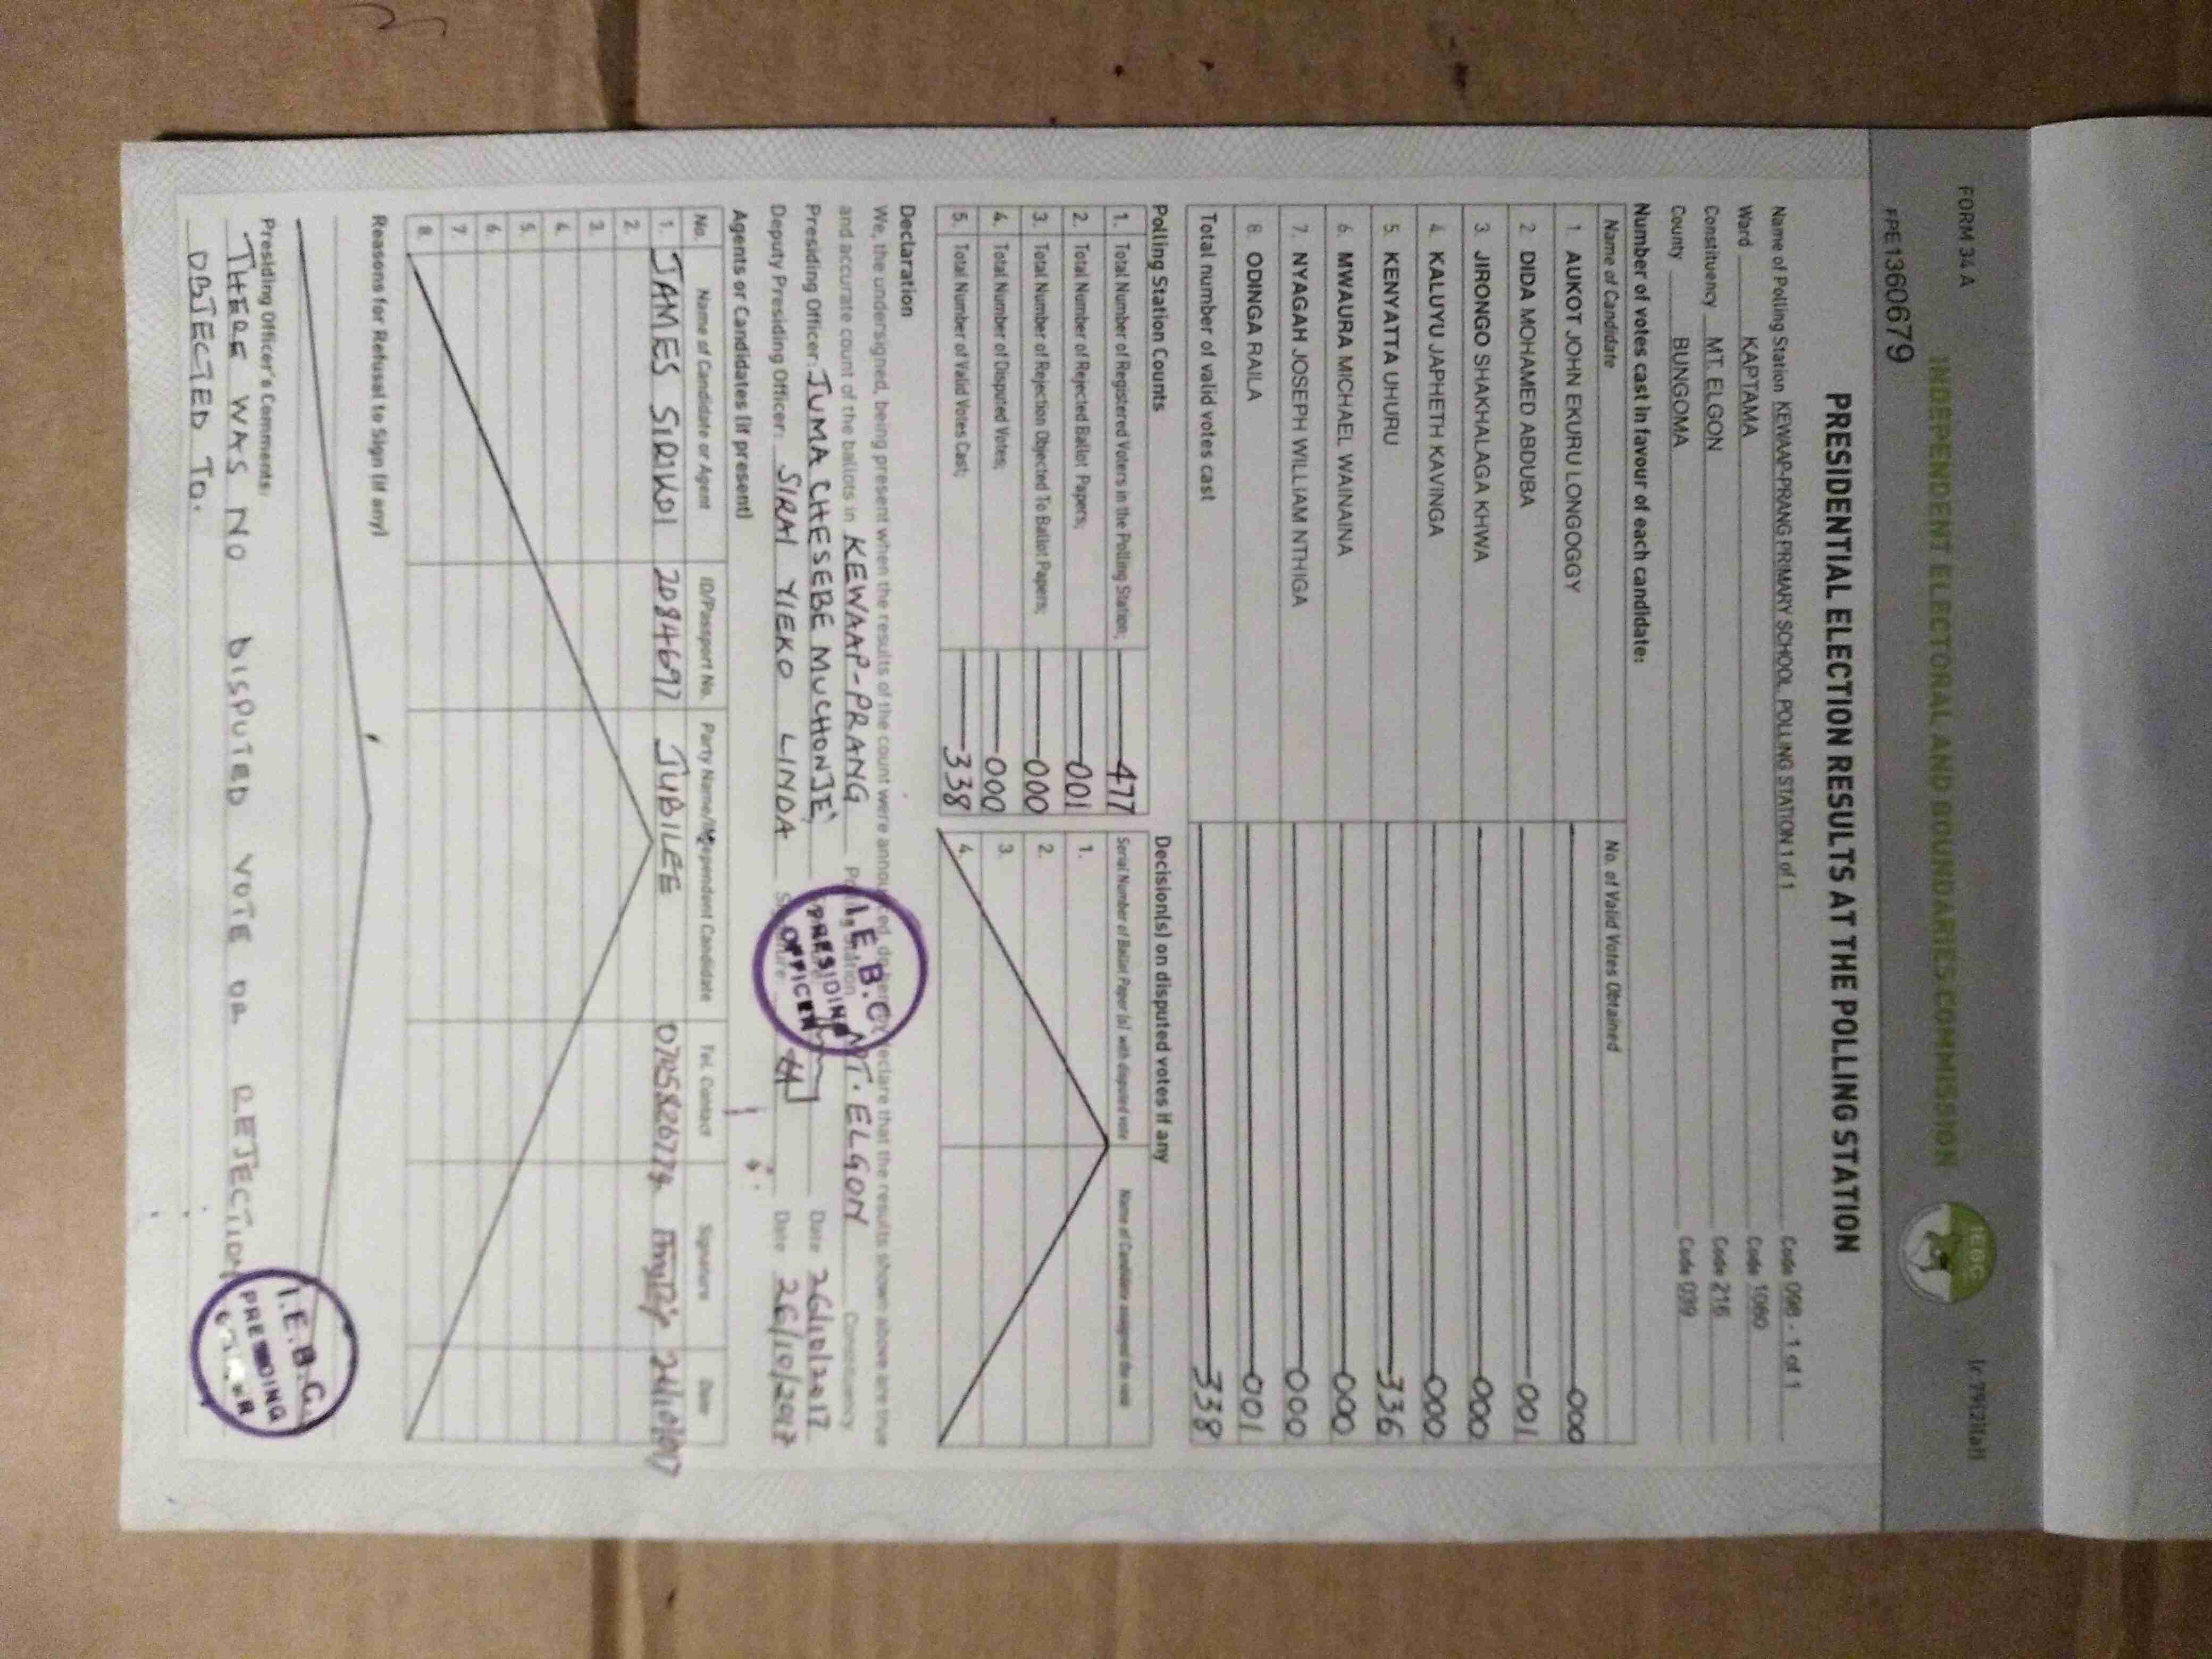 FORM 34 A
INDEPENDENT ELECTORAL AND BOUNDARIES COMMISSION
IEBC
(r.79(2)(a))
FPE1360679
PRESIDENTIAL ELECTION RESULTS AT THE POLLING STATION
Name of Polling Station KEWAAP-PRANG PRIMARY SCHOOL POLLING STATION 1 of 1 Code 098 - 1 of 1
Ward KAPTAMA Code 1080
Constituency MT. ELGON Code 216
County BUNGOMA Code 039
Number of votes cast in favour of each candidate:
Name of Candidate No. of Valid Votes Obtained
1. AUKOT JOHN EKURU LONGOGGY 000
2 DIDA MOHAMED ABDUBA 001
3. JIRONGO SHAKHALAGA KHWA 000
4. KALUYU JAPHETH KAVINGA 000
5. KENYATTA UHURU 336
6. MWAURA MICHAEL WAINAINA 000
7. NYAGAH JOSEPH WILLIAM NTHIGA 000
8. ODINGA RAILA 001
Total number of valid votes cast 338
Polling Station Counts
1. Total Number of Registered Voters in the Polling Station; 477
2. Total Number of Rejected Ballot Papers; 001
3. Total Number of Rejection Objected To Ballot Papers; 000
4. Total Number of Disputed Votes; 000
5. Total Number of Valid Votes Cast; 338
Decision(s) on disputed votes if any
Serial Number of Ballot Paper (s) with disputed vote Name of Candidate assigned the vote
1.
2.
3.
4.
Declaration
We, the undersigned, being present when the results of the count were announced, do hereby declare that the results shown above are true
and accurate count of the ballots in KEWAAP-PRANG Polling Station MT. ELGON Constituency
Presiding Officer: JUMA CHESEBE MUCHONJE Date 26/10/2017
Deputy Presiding Officer: SIRAI YIEKO LINDA Signature Date 26/10/2017
I.E.B.C
PRESIDING
OFFICER
Agents or Candidates (if present)
No. Name of Candidate or Agent ID/Passport No. Party Name/Independent Candidate Tel. Contact Signature Date
1. JAMES SIRIKOI 20846697 JUBILEE
2.
3.
4.
5.
6.
7.
8.
Reasons for Refusal to Sign (if any)
Presiding Officer's Comments:
THERE WAS NO DISPUTED VOTE OR REJECTION
OBJECTED TO.
I.E.B.C.
PRESIDING